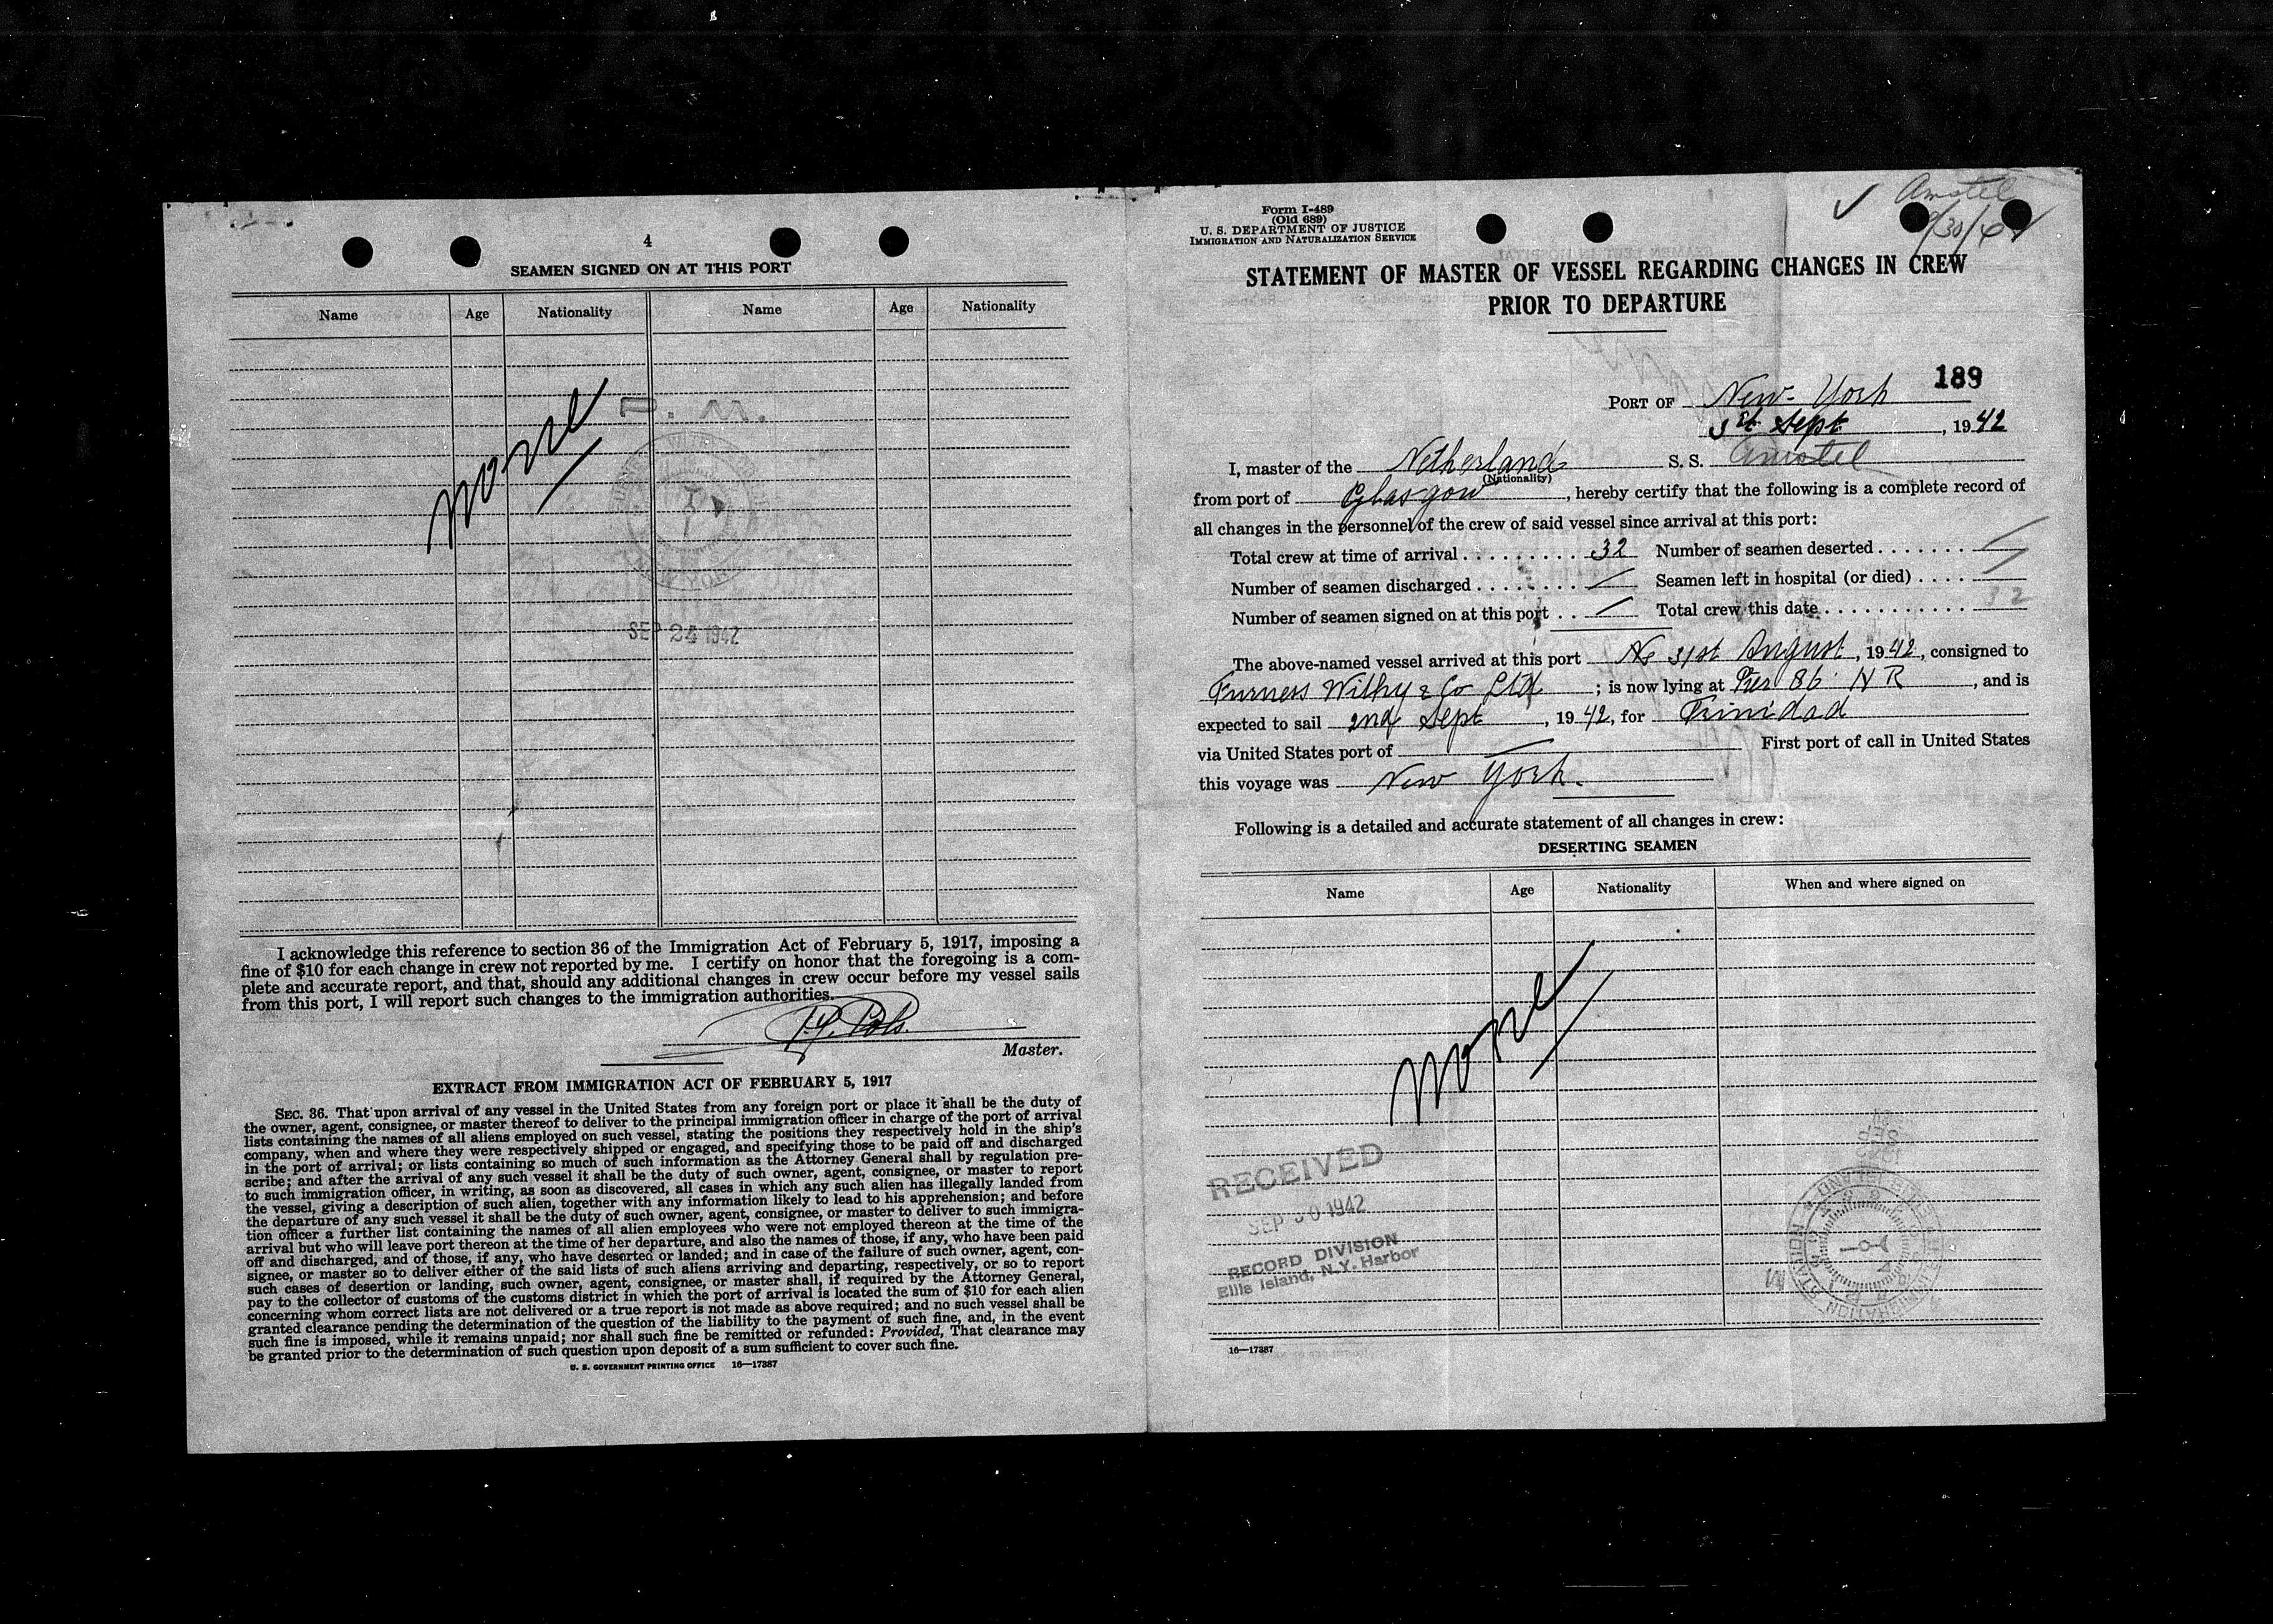 4
SEAMEN SIGNED ON AT THIS PORT
Name Age Nationality Name Age Nationality
None
SEP 24 1942
I acknowledge this reference to section 36 of the Immigration Act of February 5, 1917, imposing a
fine of $10 for each change in crew not reported by me. I certify on honor that the foregoing is a com-
plete and accurate report, and that, should any additional changes in crew occur before my vessel sails
from this port, I will report such changes to the immigration authorities.
Master.
EXTRACT FROM IMMIGRATION ACT OF FEBRUARY 5, 1917
SEC. 36. That upon arrival of any vessel in the United States from any foreign port or place it shall be the duty of
the owner, agent, consignee, or master thereof to deliver to the principal immigration officer in charge of the port of arrival
lists containing the names of all aliens employed on such vessel, stating the positions they respectively hold in the ship's
company, when and where they were respectively shipped or engaged, and specifying those to be paid off and discharged
in the port of arrival; or lists containing so much of such information as the Attorney General shall by regulation pre-
scribe; and after the arrival of any such vessel it shall be the duty of such owner, agent, consignee, or master to report
to such immigration officer, in writing, as soon as discovered, all cases in which any such alien has illegally landed from
the vessel, giving a description of such alien, together with any information likely to lead to his apprehension; and before
the departure of any such vessel it shall be the duty of such owner, agent, consignee, or master to deliver to such immigra-
tion officer a further list containing the names of all alien employees who were not employed thereon at the time of the
arrival but who will leave port thereon at the time of her departure, and also the names of those, if any, who have been paid
off and discharged, and of those, if any, who have deserted or landed; and in case of the failure of such owner, agent, con-
signee, or master so to deliver either of the said lists of such aliens arriving and departing, respectively, or so to report
such cases of desertion or landing, such owner, agent, consignee, or master shall, if required by the Attorney General,
pay to the collector of customs of the customs district in which the port of arrival is located the sum of $10 for each alien
concerning whom correct lists are not delivered or a true report is not made as above required; and no such vessel shall be
granted clearance pending the determination of the question of the liability to the payment of such fine, and, in the event
such fine is imposed, while it remains unpaid; nor shall such fine be remitted or refunded: Provided, That clearance may
be granted prior to the determination of such question upon deposit of a sum sufficient to cover such fine.
U. S. GOVERNMENT PRINTING OFFICE 16—17387
Amstel
Form I-489
(Old 689)
U. S. DEPARTMENT OF JUSTICE
IMMIGRATION AND NATURALIZATION SERVICE
STATEMENT OF MASTER OF VESSEL REGARDING CHANGES IN CREW
PRIOR TO DEPARTURE
189
PORT OF New-York
1st Sept, 1942
I, master of the Netherland S. S. Amstel
(Nationality)
from port of Glasgow, hereby certify that the following is a complete record of
all changes in the personnel of the crew of said vessel since arrival at this port:
Total crew at time of arrival . . . . . . . . . . 32 Number of seamen deserted . . . . . . . /
Number of seamen discharged . . . . . . . . / Seamen left in hospital (or died) . . . . /
Number of seamen signed on at this port . . / Total crew this date . . . . . . . . . . . . 32
The above-named vessel arrived at this port 31st August, 1942, consigned to
Furness Withy & Co Ltd ; is now lying at Pier 86 N R, and is
expected to sail 2nd Sept, 1942, for Trinidad
via United States port of — First port of call in United States
this voyage was New York.
Following is a detailed and accurate statement of all changes in crew:
DESERTING SEAMEN
Name Age Nationality When and where signed on
None
RECEIVED
SEP 30 1942
RECORD DIVISION
Ellis Island, N.Y. Harbor
16—17387